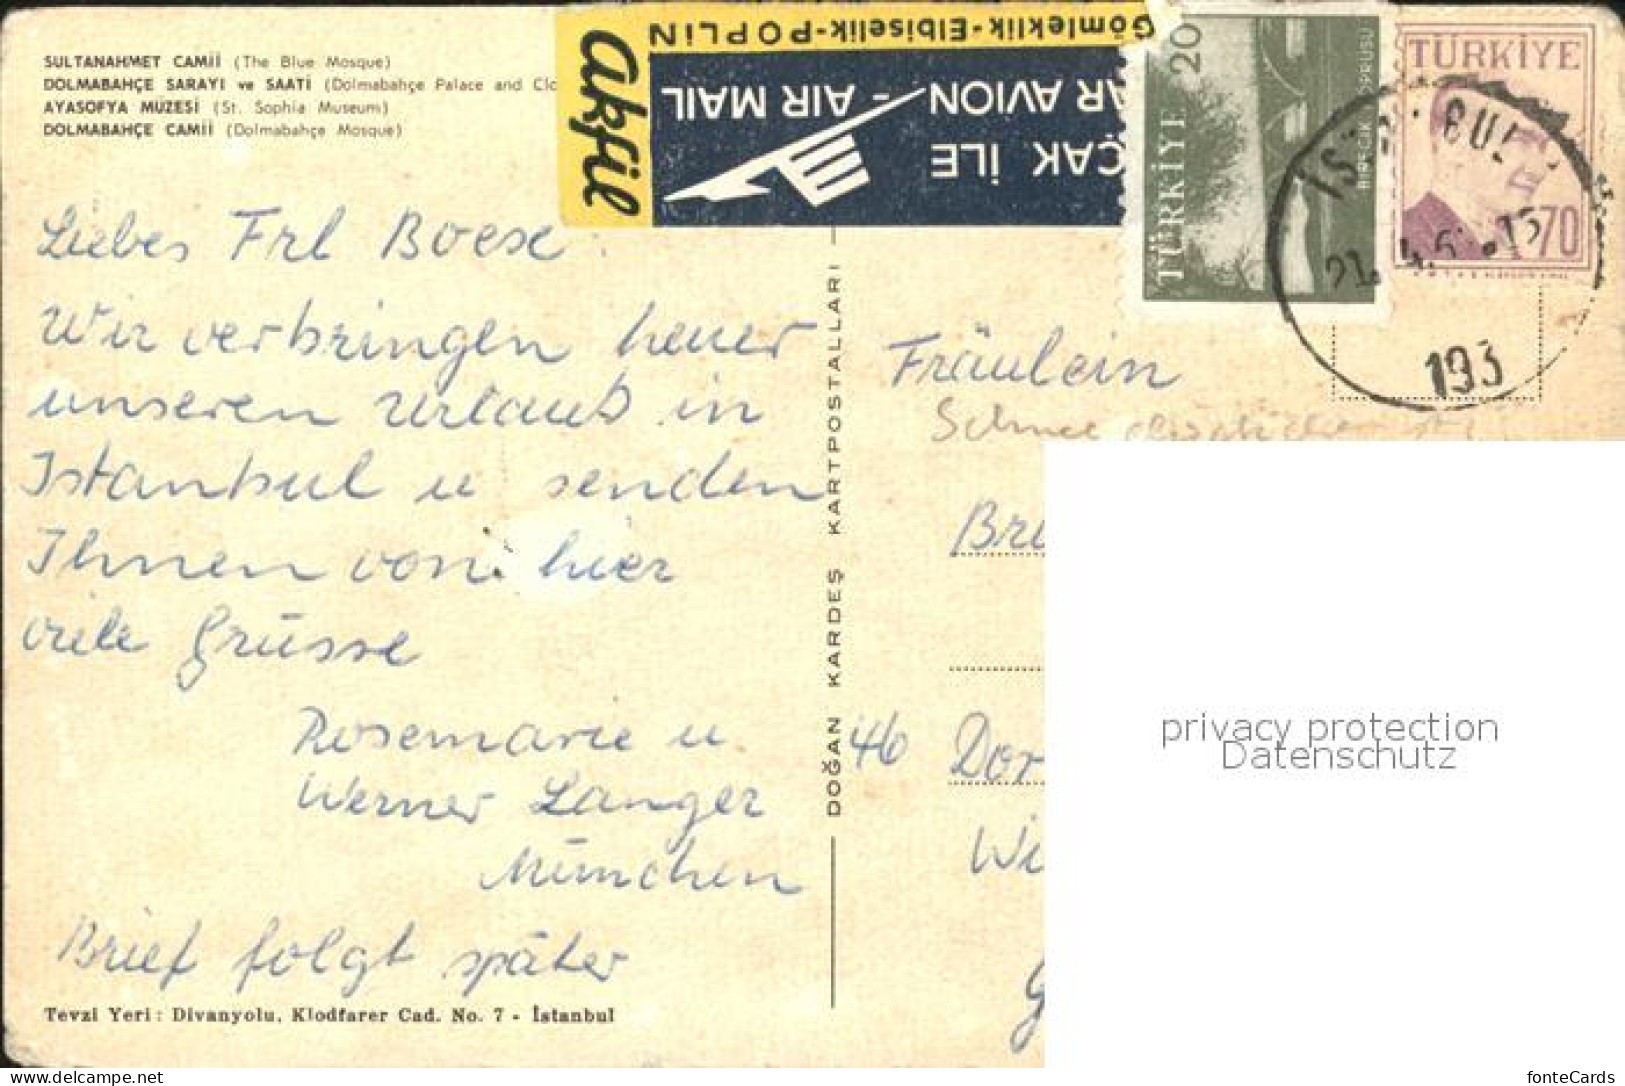 SULTANAHMET CAMİİ (The Blue Mosque)
DOLMABAHÇE SARAYI ve SAATİ (Dolmabahçe Palace and Clo
AYASOFYA MÜZESİ (St. Sophia Museum)
DOLMABAHÇE CAMİİ (Dolmabahçe Mosque)
akfil
Gömleklik-Elbiselik-POPLİN
AR AVION - AIR MAIL
ÇAK İLE
TÜRKİYE 20
BİRECİK KÖPRÜSÜ
TÜRKİYE
70
193
Liebes Frl Boese
Wir verbringen heuer
unseren Urlaub in
Istanbul u senden
Ihnen von hier
viele Grüsse
Rosemarie u
Werner Langer
München
Brief folgt später
Tevzi Yeri: Divanyolu, Klodfarer Cad. No. 7 - İstanbul
DOĞAN KARDEŞ KARTPOSTALLARI
Fräulein
46 Dor
Wi
privacy protection
Datenschutz
delcampe.net
fonteCards